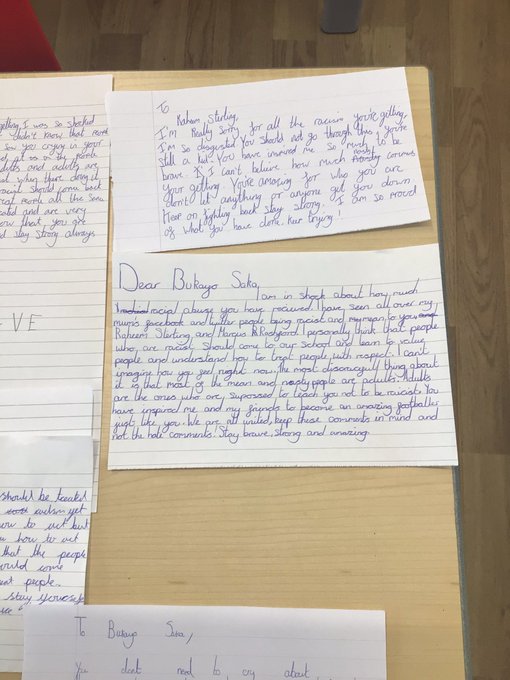 To
Raheem Sterling,
I'm Really Sorry for all the racism you're getting,
I'm so disgusted You should not go through this, you're
still a kid! You have inspired me so much to be
brave. I can't believe how much racist commens
your getting. You're amazing for who you are
don't let anything or anyone get you down
Kear on fighting back stay strong. I am so proud
of what you have done. Kear trying!
Dear Bukayo Saka,
I am in shock about how much
racial abuse you have recieved. I have seen all over my
mum's facebook and twitter people being racist and mean to you,
Raheem Sterling and Marcus Rashford. I personally think that people
who are racist should come to our school and learn to value
people and understand how to treat people with respect. I can't
imagine how you feel right now. The most disgraceful thing about
it is that most of the mean and nasty people are adults. Adults
are the ones who are supossed to teach you not to be racist. You
have inspired me and my friends to become an amazing footballer
just like you. We are all united, keep these comments in mind and
not the hate comments. Stay brave, strong and amazing.
getting, I was so shocked
didn't know that
saw you crying in your
adults and adults are
what they doing it
racist should come back
and are very
know that, you are
stay strong always
VE
should be treated
racism yet
how to act but
how to act
that the people
would come
people.
stay yourselfe
To Bukayo Saka,
You dont need to cry about